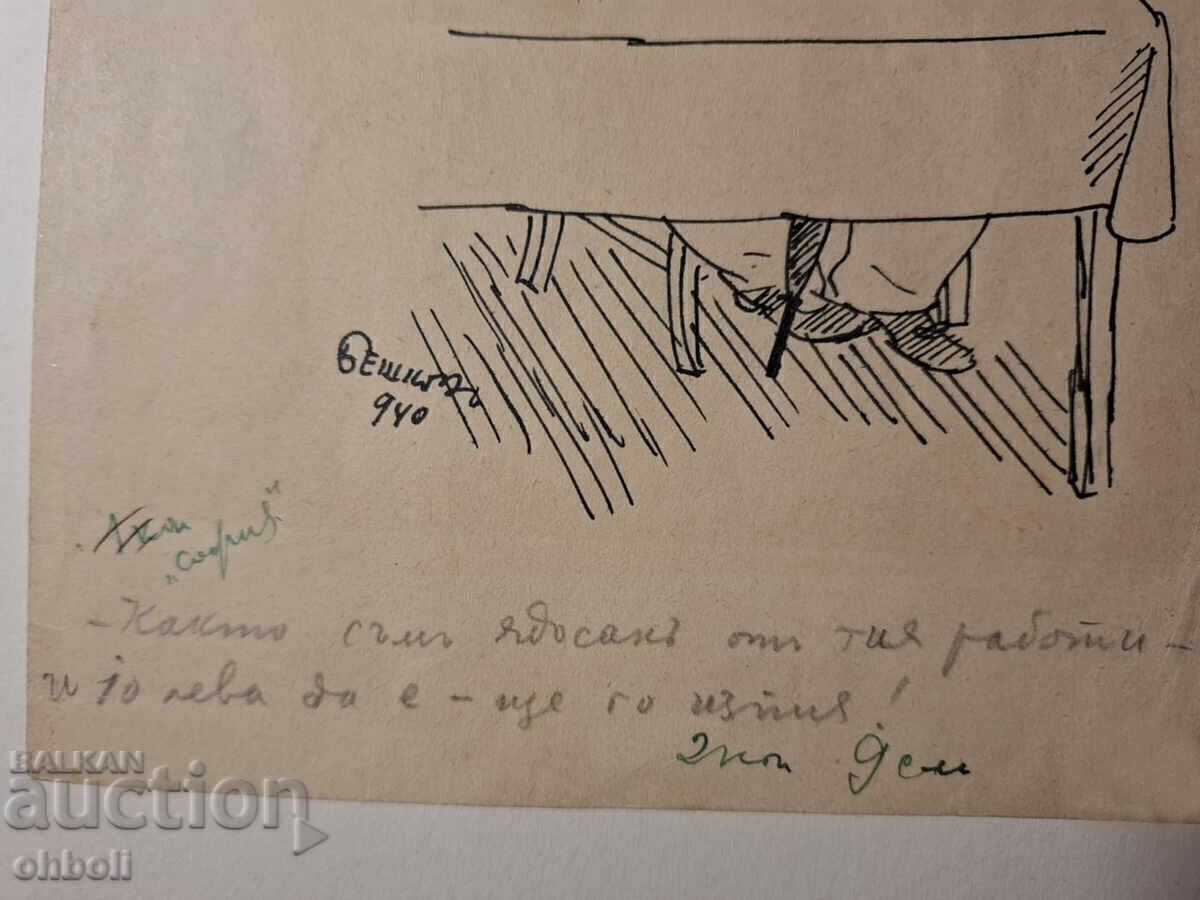 Бешковъ
940
"София"
- Както съмъ ядосанъ отъ тия работи -
и 10 лева да е - ще го изпия!
2 кол 9 см
BALKAN
auction
ohboli